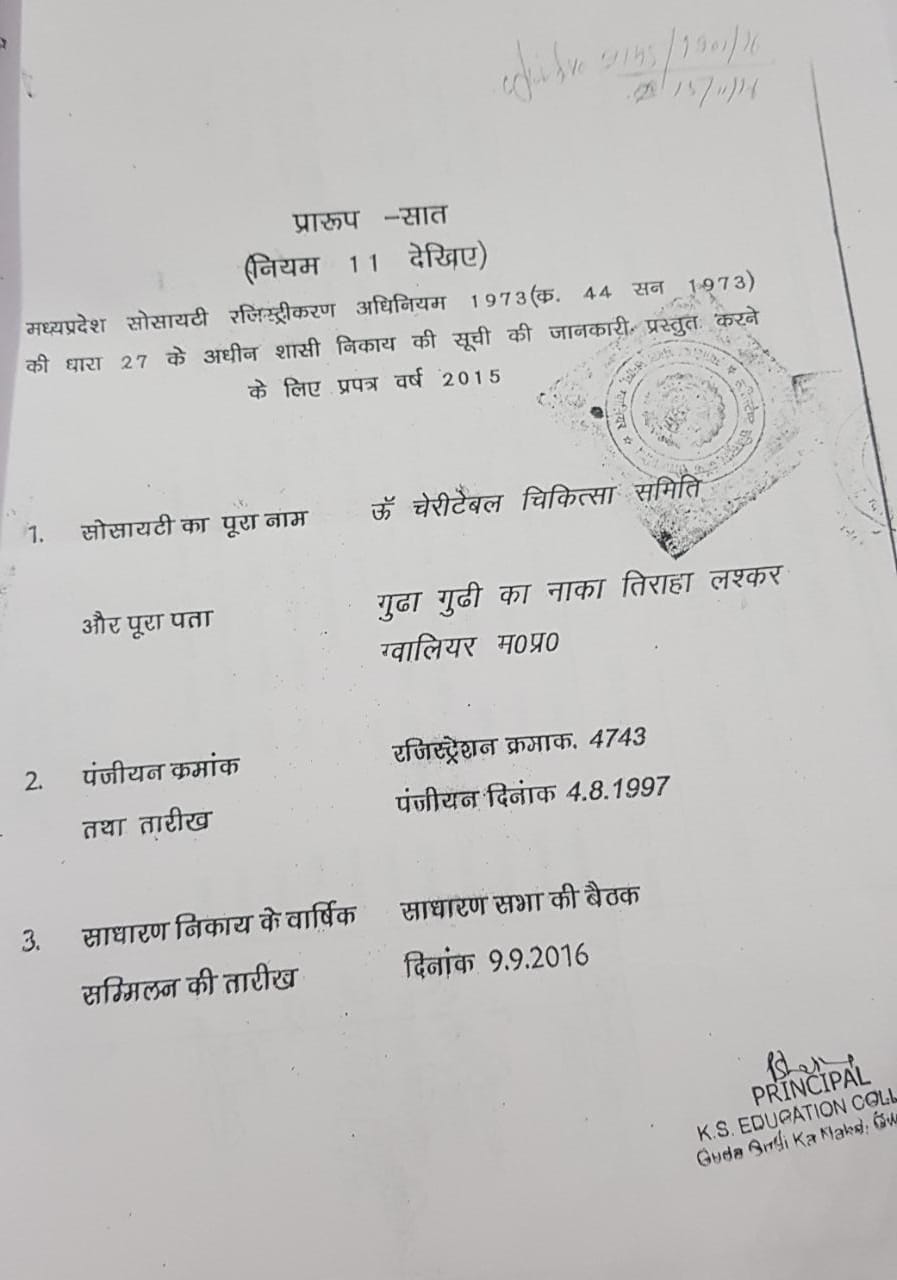 /1901/16
15/11/16
प्रारूप -सात
(नियम 11 देखिए)
मध्यप्रदेश सोसायटी रजिस्ट्रीकरण अधिनियम 1973(क. 44 सन 1973)
की धारा 27 के अधीन शासी निकाय की सूची की जानकारी प्रस्तुत करने
के लिए प्रपत्र वर्ष 2015
1. सोसायटी का पूरा नाम ऊॅ चेरीटेबल चिकित्सा समिति
और पूरा पता गुढा गुढी का नाका तिराहा लश्कर
ग्वालियर म0प्र0
2. पंजीयन कमांक रजिस्ट्रेशन क्रमाक. 4743
तथा तारीख पंजीयन दिनांक 4.8.1997
3. साधारण निकाय के वार्षिक साधारण सभा की बैठक
सम्मिलन की तारीख दिनांक 9.9.2016
PRINCIPAL
K.S. EDUCATION COLL
Guda Gudi Ka Naka, Gw